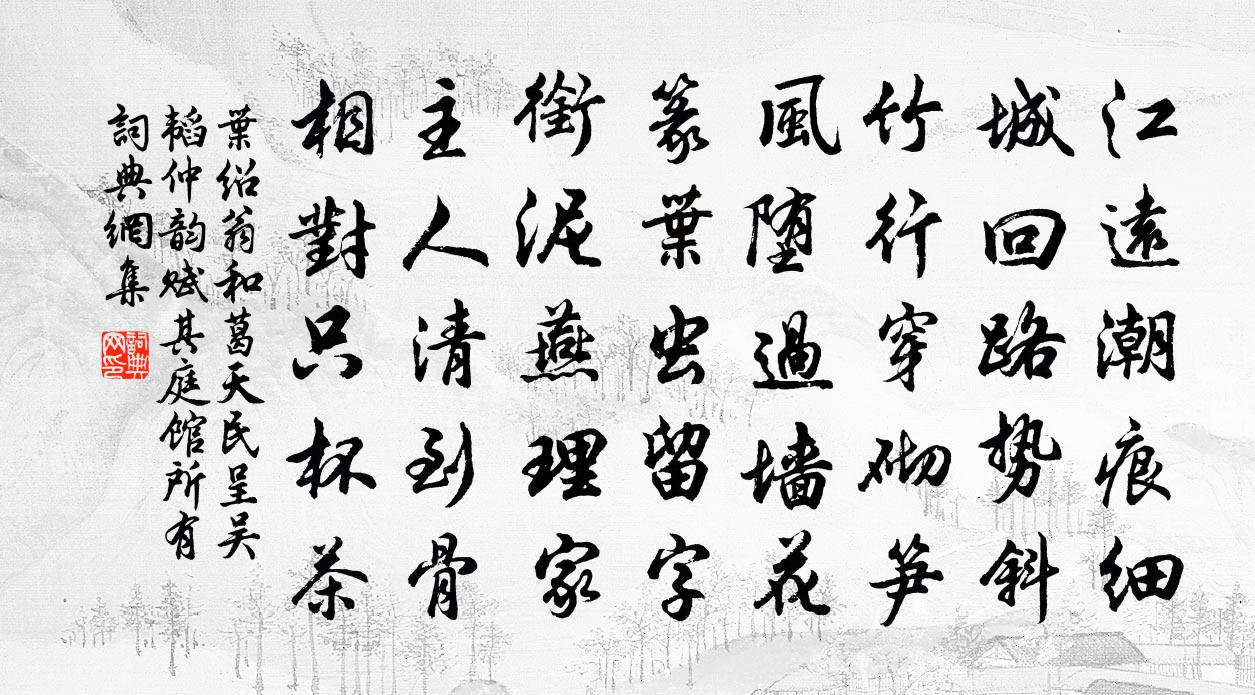 江遠潮痕細
城回路势斜
竹行穿砌笋
風堕過墙花
篆葉虫留字
銜泥燕理家
主人清到骨
相對只杯茶
葉绍翁和葛天民呈吴
韬仲韵赋其庭馆所有
詞典網集
詞典
网印